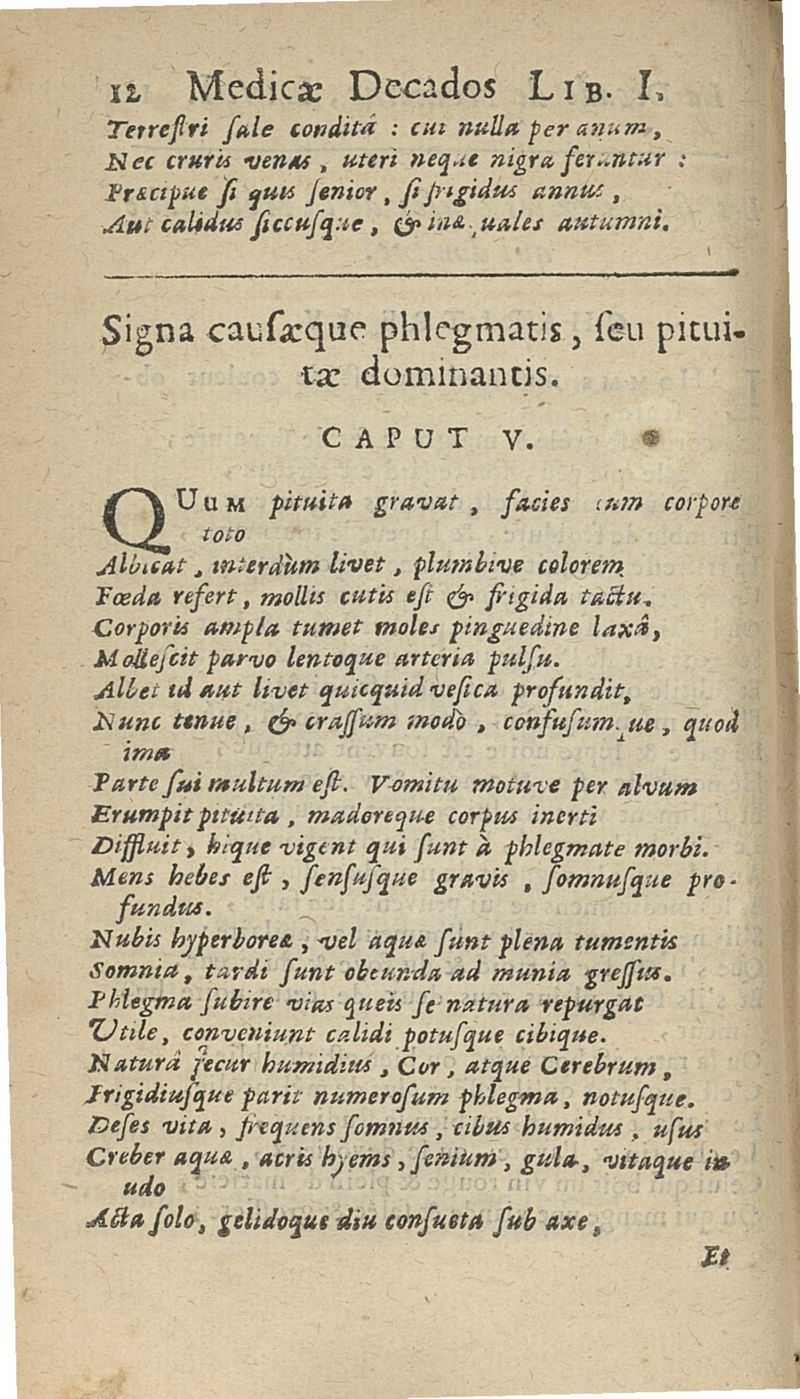 12 Medicæ Decados LIB. I.
Terreſtri ſale conditâ : cui nulla per anum,
Nec cruris venas, uteri neque nigra ferantur :
Præcipue ſi quis ſenior, ſi frigidus annus,
Aut calidus ſiccuſque, & inæquales autumni.
Signa cauſæque phlegmatis, ſeu pitui-
tæ dominantis.
CAPUT V.
QUUM pituita gravat, facies cum corpore
toto
Albicat, interdùm livet, plumbive colorem
Fœda refert, mollis cutis eſt & frigida tactu.
Corporis ampla tumet moles pinguedine laxâ,
Molleſcit parvo lentoque arteria pulſu.
Albet id aut livet quicquid veſica profundit,
Nunc tenue, & craſſum modò, confuſumque, quod
ima
Parte ſui multum eſt. Vomitu motuve per alvum
Erumpit pituita, madoreque corpus inerti
Diffluit, hique vigent qui ſunt à phlegmate morbi.
Mens hebes eſt, ſenſuſque gravis, ſomnuſque pro-
fundus.
Nubis hyperboreæ, vel aquæ ſunt plena tumentis
Somnia, tardi ſunt obeunda ad munia greſſus.
Phlegma ſubire vias queis ſe natura repurgat
Utile, conveniunt calidi potuſque cibique.
Naturâ jecur humidius, Cor, atque Cerebrum,
Frigidiuſque parit numeroſum phlegma, notuſque.
Deſes vita, frequens ſomnus, cibus humidus, uſus
Creber aquæ, acris hyems, ſenium, gula, vitaque in
udo
Acta ſolo, gelidoque diu conſueta ſub axe,
Et